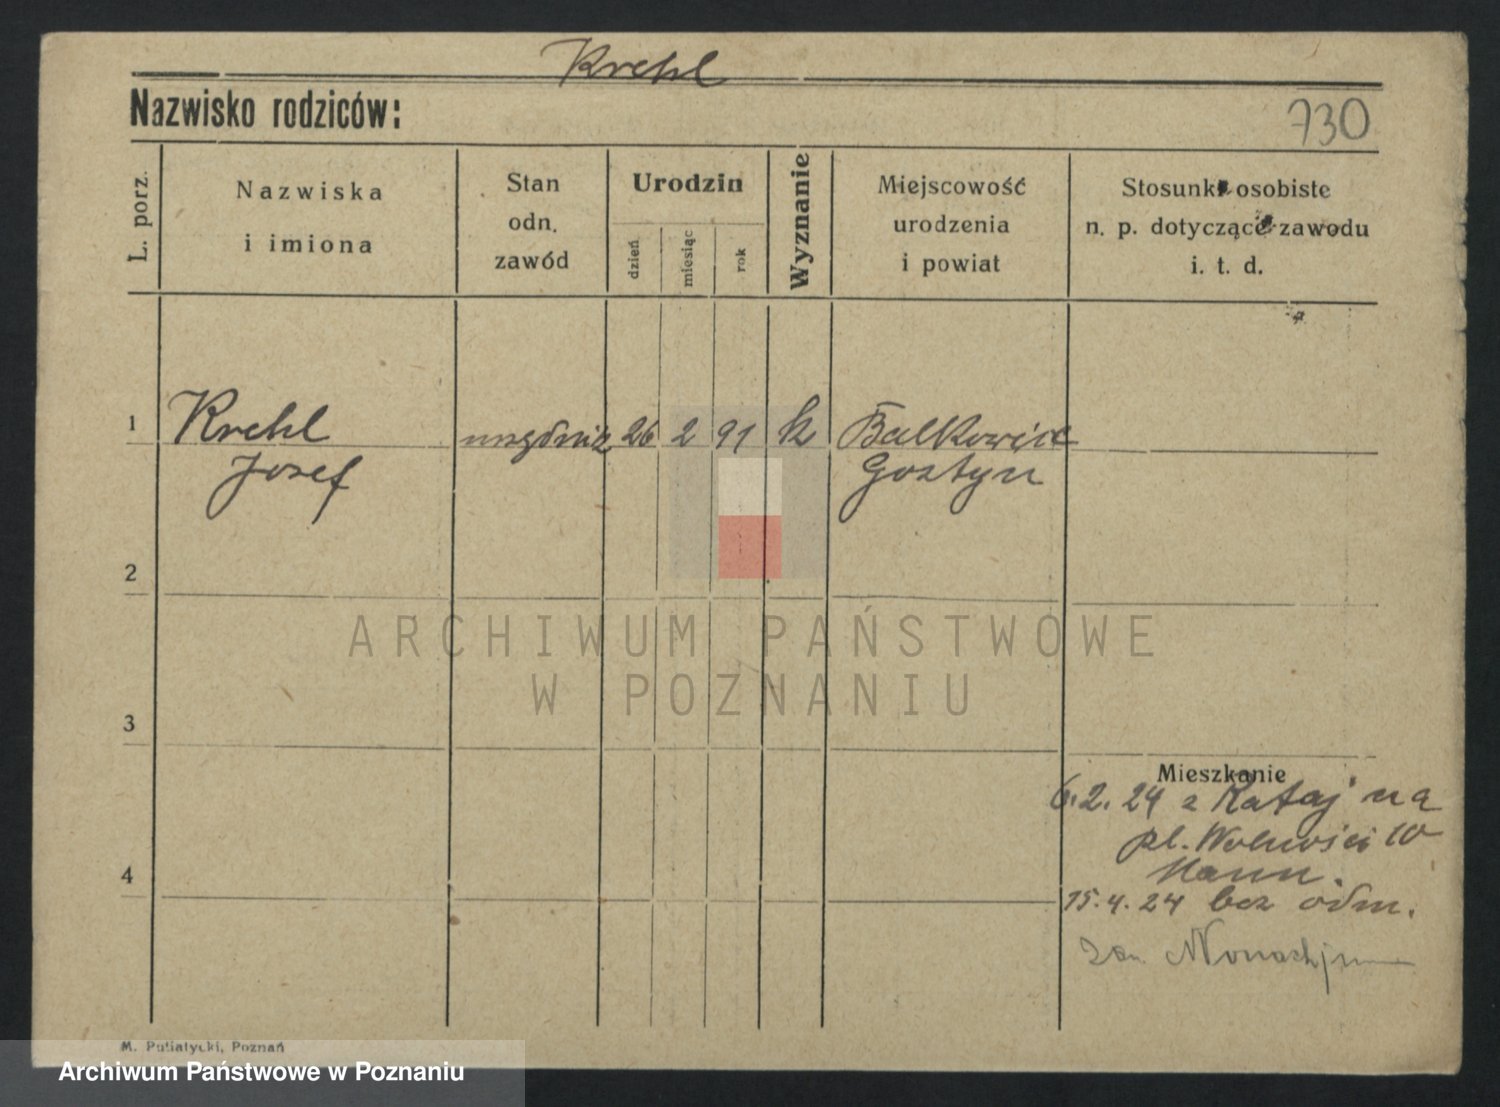 Krehl
Nazwisko rodziców:
730
L. porz.
Nazwiska
i imiona
Stan
odn.
zawód
Urodzin
dzień
miesiąc
rok
Wyznanie
Miejscowość
urodzenia
i powiat
Stosunki osobiste
n. p. dotyczące zawodu
i. t. d.
1
Krehl
Josef
26
2
91
k
Gostyn
2
3
4
Mieszkanie
6.2.24 z Rataj na
pl. Wolności 10
15.4.24 bez odm.
Monachjum
ARCHIWUM PAŃSTWOWE
W POZNANIU
M. Putiatycki, Poznań
Archiwum Państwowe w Poznaniu